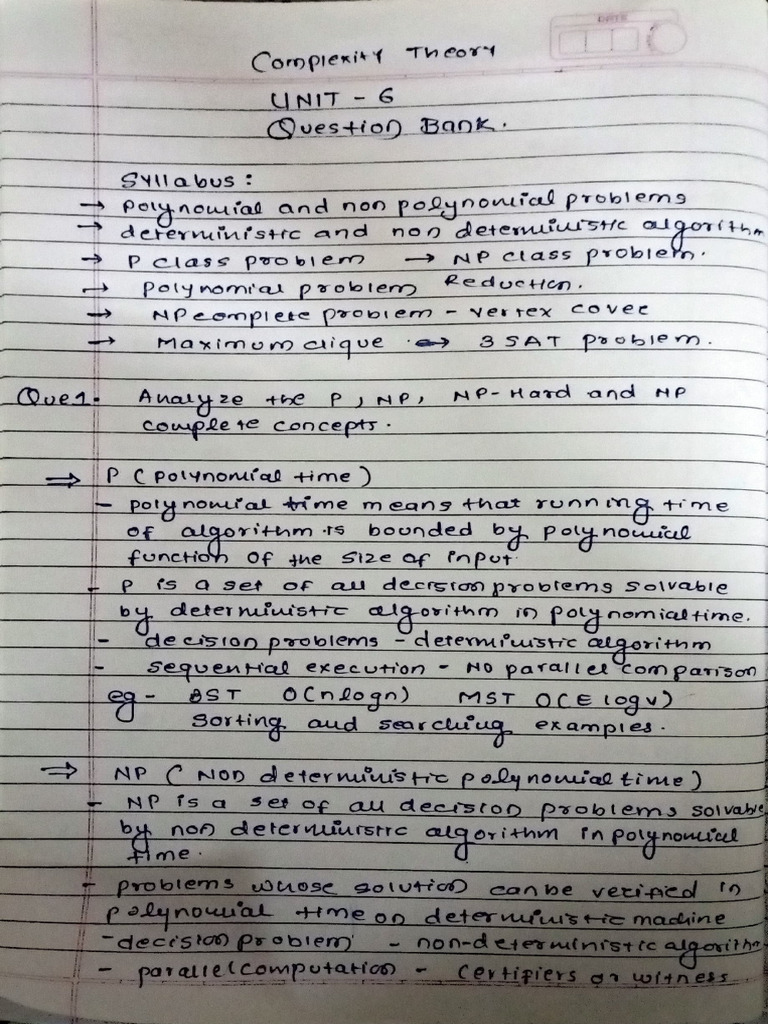 DATE
Complexity Theory
UNIT - 6
Question Bank.
Syllabus :
→ polynomial and non polynomial problems
→ deterministic and non deterministic algorithm
→ P class problem → NP class problem.
→ polynomial problem Reduction.
→ NP complete problem - vertex cover
→ Maximum clique → 3 SAT problem.
Que 1. Analyze the P, NP, NP-Hard and NP
complete concepts.
⇒ P (polynomial time)
- polynomial time means that running time
of algorithm is bounded by polynomial
function of the size of input.
- P is a set of all decision problems solvable
by deterministic algorithm in polynomial time.
- decision problems - deterministic algorithm
- sequential execution - No parallel comparison
eg - BST O(nlogn) MST O(E logv)
sorting and searching examples.
⇒ NP (Non deterministic polynomial time)
- NP is a set of all decision problems solvable
by non deterministic algorithm in polynomial
time.
- problems whose solution can be verified in
polynomial time on deterministic machine
- decision problem - non-deterministic algorithm
- parallel computation - certifiers or witness